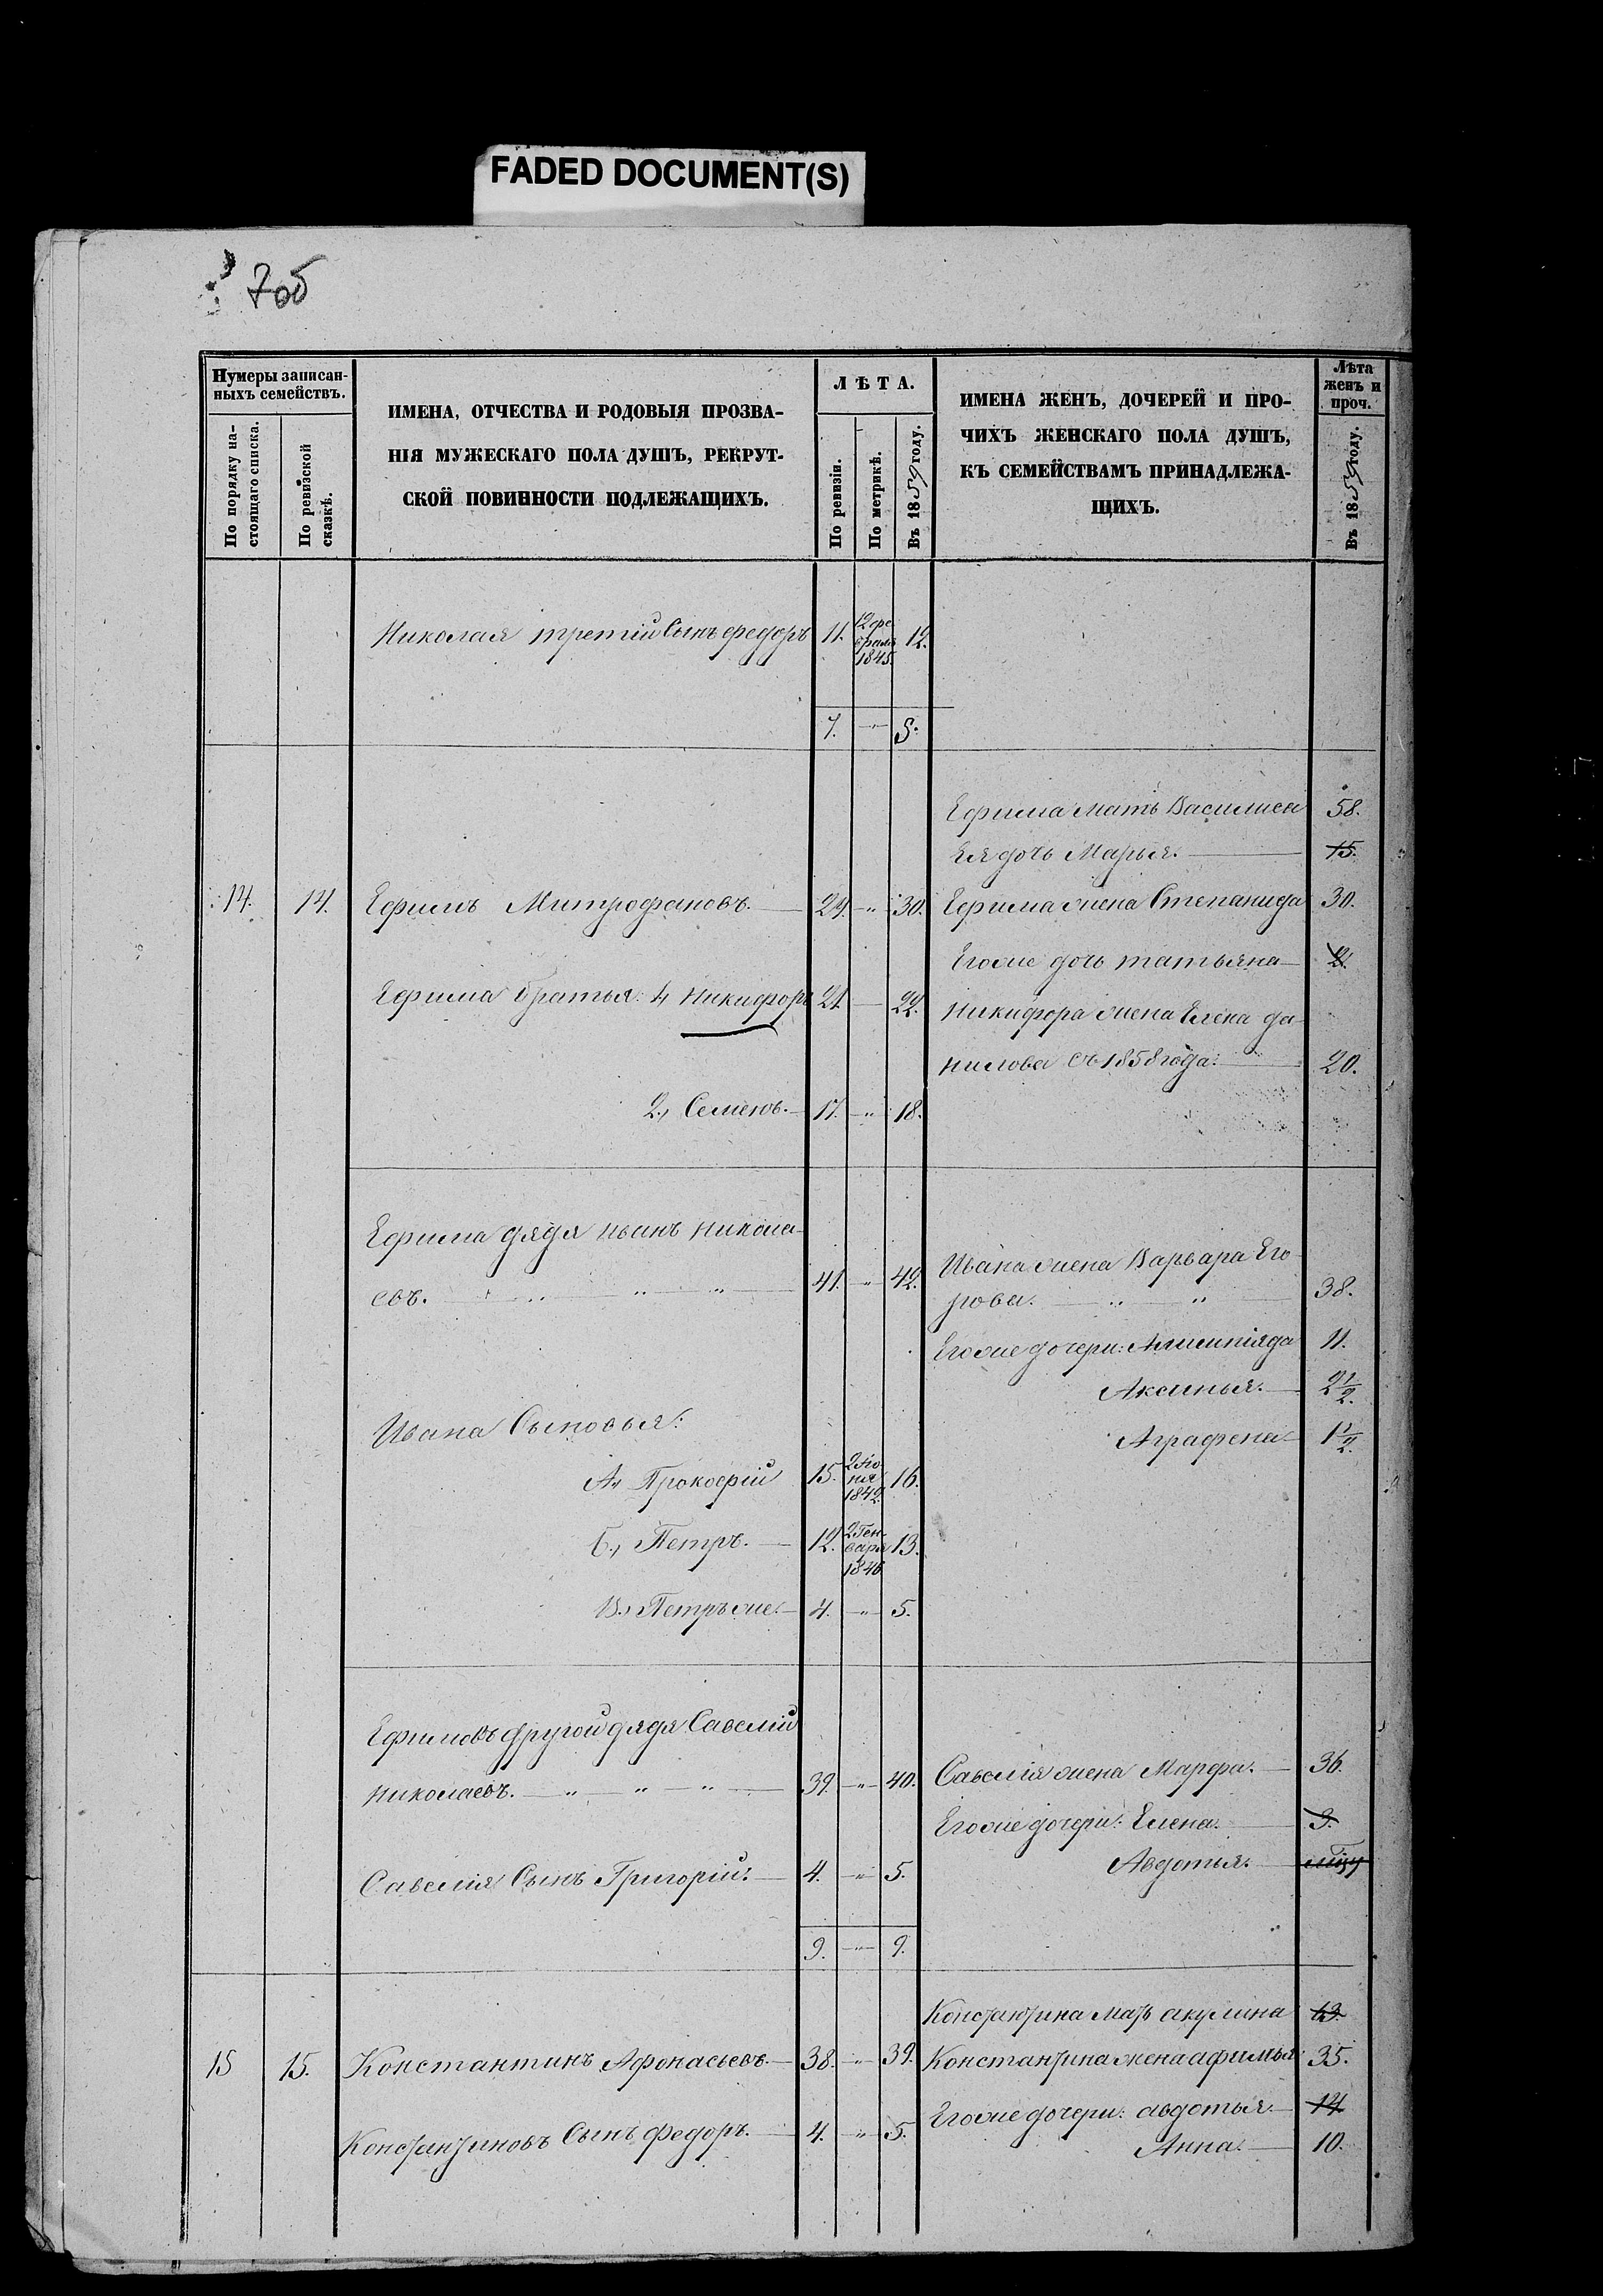 FADED DOCUMENT(S)
7об
Нумеры записан-
ныхъ семействъ.
По порядку на-
стоящаго списка.
По ревизской
сказкѣ.
ИМЕНА, ОТЧЕСТВА И РОДОВЫЯ ПРОЗВА-
НІЯ МУЖЕСКАГО ПОЛА ДУШЪ, РЕКРУТ-
СКОЙ ПОВИННОСТИ ПОДЛЕЖАЩИХЪ.
ЛѢТА.
По ревизіи.
По метрикѣ.
Въ 1859 году.
ИМЕНА ЖЕНЪ, ДОЧЕРЕЙ И ПРО-
ЧИХЪ ЖЕНСКАГО ПОЛА ДУШЪ,
КЪ СЕМЕЙСТВАМЪ ПРИНАДЛЕЖА-
ЩИХЪ.
Лѣта
женъ и
проч.
Въ 1859 году.
Николая третій Сынъ федоръ 11. 12 фе
враля
1845. 12.
7. — „ —
Ефима мать Василиса 58.
Ея дочь Марья. — 15.
14. 14. Ефимъ Митрофановъ. — 29. — „ — 30. Ефима жена Степанида 30.
Его же дочь татьяна —
Ефима братья: 1, Никифоръ 21. — 22. Никифора жена Елена да-
нилова съ 1858 года: — 20.
2., Семенъ. — 17. — „ — 18.
Ефима дядя иванъ никола-
евъ. — „ — „ — „ — 41. — „ — 42. Ивана жена Варвара Его-
рова. — „ — „ — 38.
Его же дочери: 11.
Аксинья. — 2 1/2.
Ивана Сыновья:
Аграфена — 1 1/2.
А., Прокофій 15. 2 Ию
ня
1842. 16.
Б., Петръ. — 12. 2 Ген-
варя
1846 13.
В., Петръ же. — 4. — „ — 5.
Ефимовъ другой дядя Савелій
николаевъ. — „ — „ — „ — 39. — „ — 40. Савелія жена Марфа. — 36.
Его же дочери: Елена. — 3.
Авдотья. —
Савелія Сынъ Григорій: — 4. — „ — 5.
9. — „ — 9.
Константина мать акулина 63.
15 15. Константинъ Афонасьевъ. — 38. — „ — 39. Константина жена афимья 35.
Его же дочери: авдотья. — 14
Константиновъ Сынъ федоръ. — 4. — „ — 5. Анна. — 10.